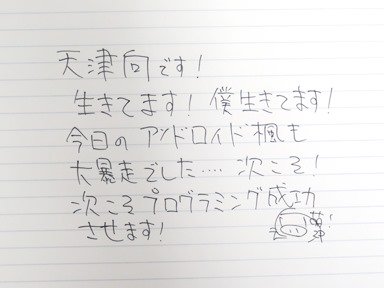 天津向です!
生きてます! 僕生きてます!
今日のアンドロイド楓も
大暴走でした.... 次こそ!
次こそプログラミング成功
させます!